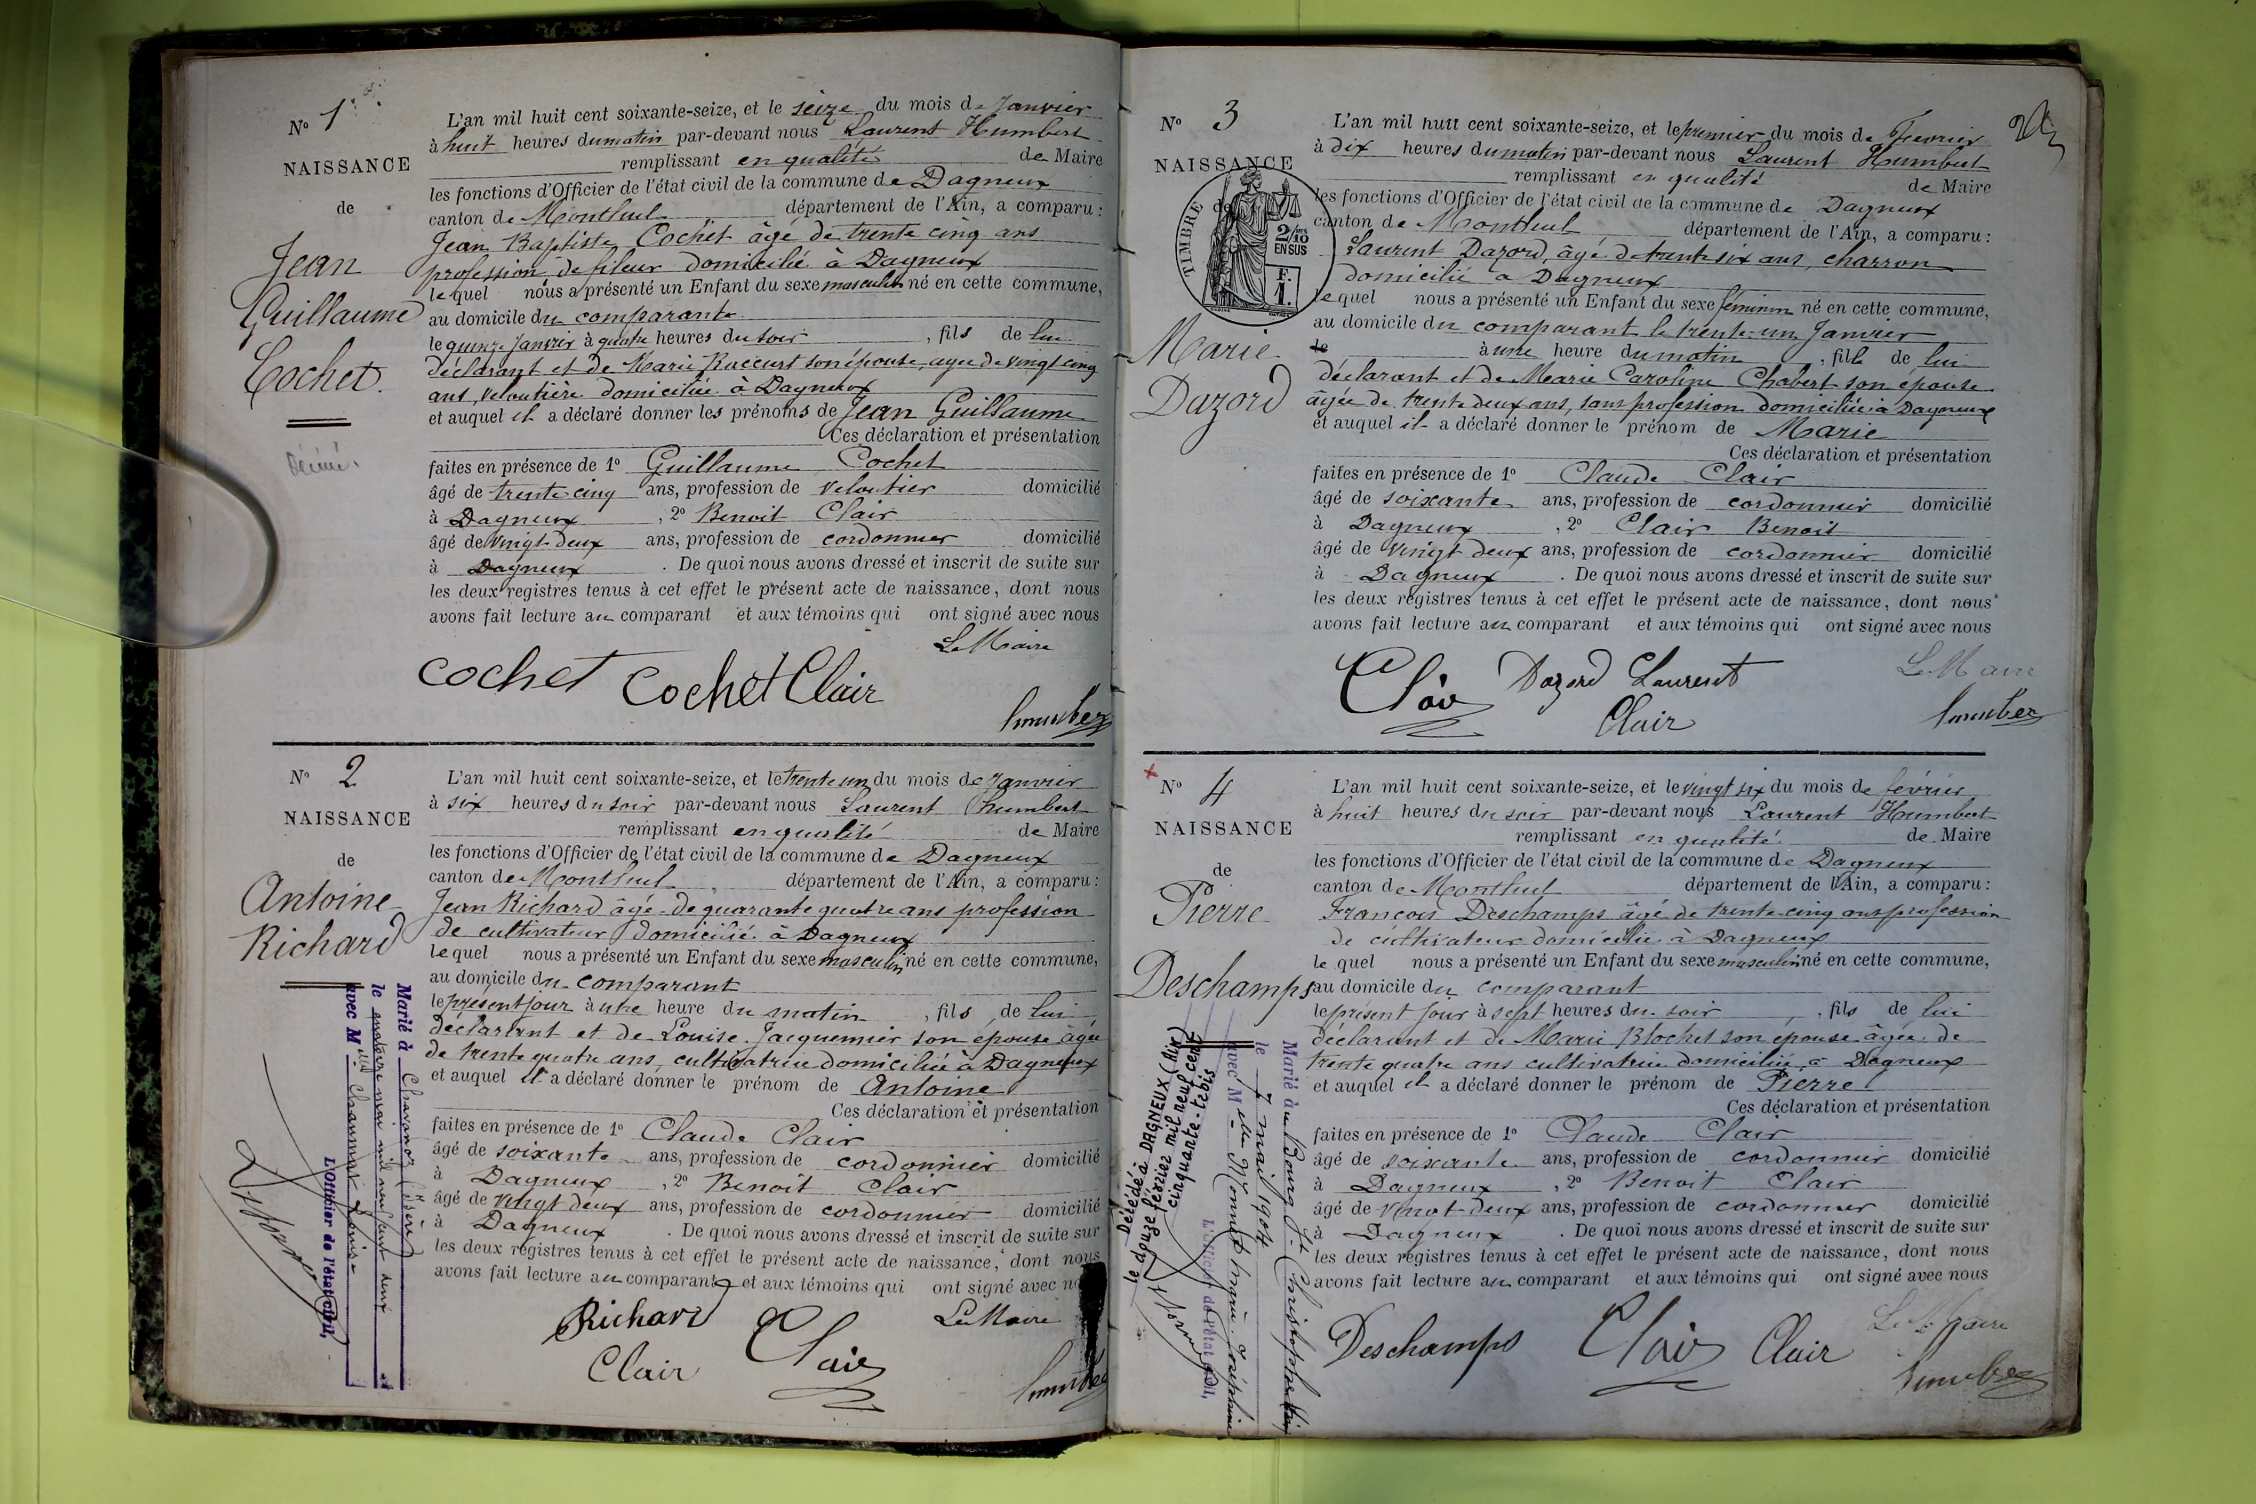 N° 1
NAISSANCE
de
Jean
Guillaume
Cochet.
L'an mil huit cent soixante-seize, et le seize du mois de Janvier
à huit heures du matin par-devant nous Laurent Humbert
remplissant en qualité de Maire
les fonctions d'Officier de l'état civil de la commune de Dagneux
canton de Montluel département de l'Ain, a comparu :
Jean Baptiste Cochet âgé de trente cinq ans
profession de fileur domicilié à Dagneux
lequel nous a présenté un Enfant du sexe masculin né en cette commune,
au domicile du comparant
le quinze Janvier à quatre heures du soir , fils de lui
déclarant et de Marie Raccurt son épouse, agée de vingt cinq
ans, veloutière domiciliée à Dagneux
et auquel il a déclaré donner les prénoms de Jean Guillaume
Ces déclaration et présentation
faites en présence de 1° Guillaume Cochet
âgé de trente cinq ans, profession de veloutier domicilié
à Dagneux , 2° Benoit Clair
âgé de vingt deux ans, profession de cordonnier domicilié
à Dagneux . De quoi nous avons dressé et inscrit de suite sur
les deux registres tenus à cet effet le présent acte de naissance, dont nous
avons fait lecture au comparant et aux témoins qui ont signé avec nous
Le Maire
Cochet Cochet Clair
Humbert
N° 2
NAISSANCE
de
Antoine
Richard
L'an mil huit cent soixante-seize, et le trente un du mois de Janvier
à six heures du soir par-devant nous Laurent Humbert
remplissant en qualité de Maire
les fonctions d'Officier de l'état civil de la commune de Dagneux
canton de Montluel département de l'Ain, a comparu :
Jean Richard âgé de quarante quatre ans profession
de cultivateur domicilié à Dagneux
lequel nous a présenté un Enfant du sexe masculin né en cette commune,
au domicile du comparant
le présent jour à une heure du matin , fils de lui
déclarant et de Louise Jacquemier son épouse âgée
de trente quatre ans, cultivatrice domiciliée à Dagneux
et auquel il a déclaré donner le prénom de Antoine
Ces déclaration et présentation
faites en présence de 1° Claude Clair
âgé de soixante ans, profession de cordonnier domicilié
à Dagneux , 2° Benoit Clair
âgé de vingt deux ans, profession de cordonnier domicilié
à Dagneux . De quoi nous avons dressé et inscrit de suite sur
les deux registres tenus à cet effet le présent acte de naissance, dont nous
avons fait lecture au comparant et aux témoins qui ont signé avec
Le Maire
Richard Clair
Clair
Humbert
Marié à Chavanoz (Isère)
le quatorze mai mil neuf cent deux
avec Melle
L'Officier de l'état civil,
N° 3
NAISSANCE
de
TIMBRE
2/10
EN SUS
F.
1.
Marie
Dazord
L'an mil huit cent soixante-seize, et le premier du mois de Fevrier
à dix heures du matin par-devant nous Laurent Humbert
remplissant en qualité de Maire
les fonctions d'Officier de l'état civil de la commune de Dagneux
canton de Montluel département de l'Ain, a comparu :
Laurent Dazord, âgé de trente six ans, charron
domicilié à Dagneux
lequel nous a présenté un Enfant du sexe féminin né en cette commune,
au domicile du comparant le trente-un Janvier
le à une heure du matin , fille de lui
déclarant et de Marie Caroline Chabert son épouse
âgée de trente deux ans, sans profession domiciliée à Dagneux
et auquel il a déclaré donner le prénom de Marie
Ces déclaration et présentation
faites en présence de 1° Claude Clair
âgé de soixante ans, profession de cordonnier domicilié
à Dagneux , 2° Clair Benoit
âgé de vingt deux ans, profession de cordonnier domicilié
à Dagneux . De quoi nous avons dressé et inscrit de suite sur
les deux registres tenus à cet effet le présent acte de naissance, dont nous
avons fait lecture au comparant et aux témoins qui ont signé avec nous
Clair Dazord Laurent Le Maire
Clair Humbert
N° 4
NAISSANCE
de
Pierre
Deschamps
L'an mil huit cent soixante-seize, et le vingt six du mois de février
à huit heures du soir par-devant nous Laurent Humbert
remplissant en qualité de Maire
les fonctions d'Officier de l'état civil de la commune de Dagneux
canton de Montluel département de l'Ain, a comparu :
François Deschamps âgé de trente cinq ans profession
de cultivateur domicilié à Dagneux
lequel nous a présenté un Enfant du sexe masculin né en cette commune,
au domicile du comparant
le présent jour à sept heures du soir , fils de lui
déclarant et de Marie Blochet son épouse âgée de
trente quatre ans cultivatrice domiciliée à Dagneux
et auquel il a déclaré donner le prénom de Pierre
Ces déclaration et présentation
faites en présence de 1° Claude Clair
âgé de soixante ans, profession de cordonnier domicilié
à Dagneux , 2° Benoit Clair
âgé de vingt-deux ans, profession de cordonnier domicilié
à Dagneux . De quoi nous avons dressé et inscrit de suite sur
les deux registres tenus à cet effet le présent acte de naissance, dont nous
avons fait lecture au comparant et aux témoins qui ont signé avec nous
Deschamps Clair Clair Le Maire
Humbert
Marié à Bourg St Christophe (Ain)
le 7 mai 1904
avec Melle Monnet Marie Joséphine
L'Officier de l'état civil,
Décédé à DAGNEUX (Ain)
le douze février mil neuf cent
cinquante-trois